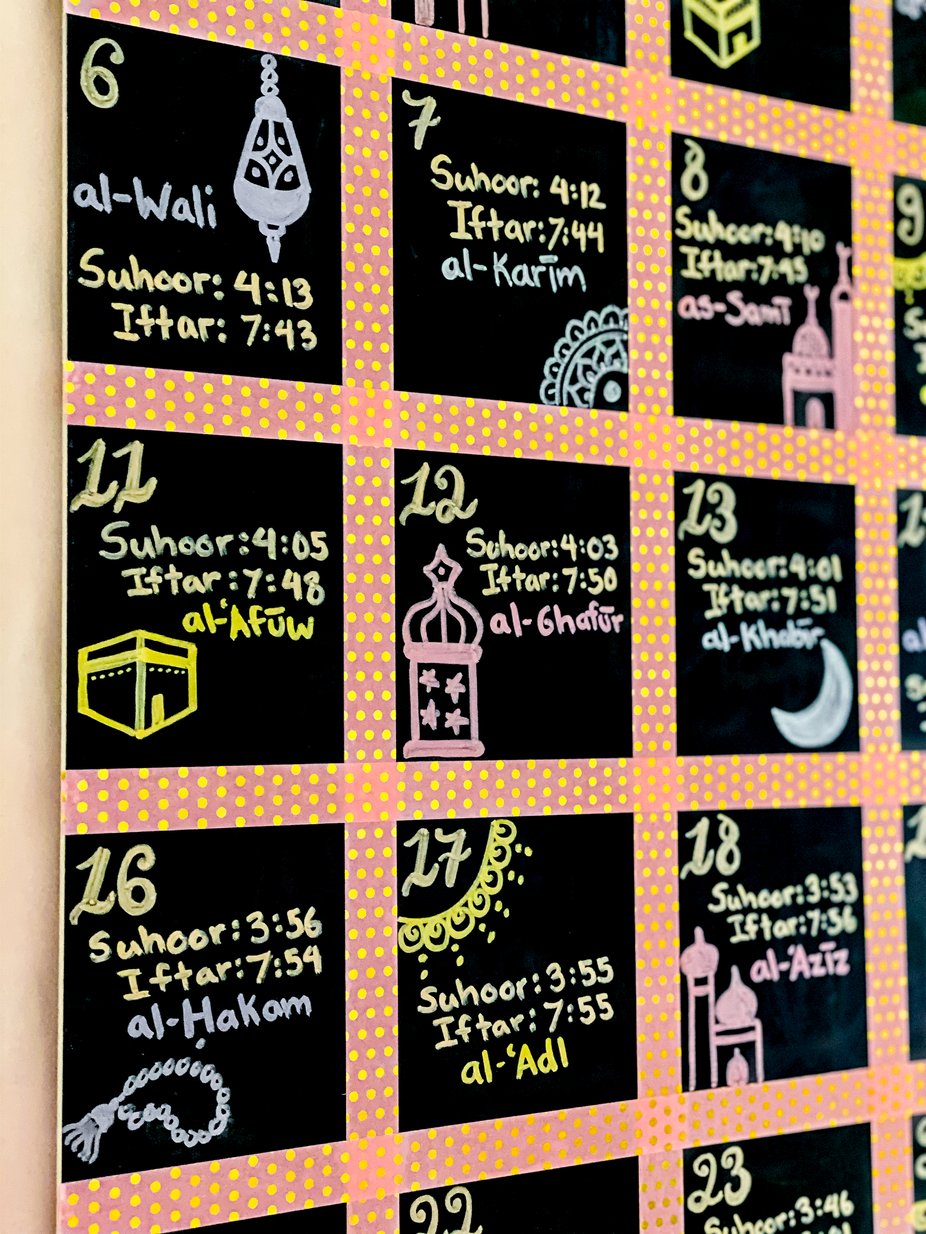 6
al-Wali
Suhoor: 4:13
Iftar: 7:43
7
Suhoor: 4:12
Iftar: 7:44
al-Karīm
8
Suhoor: 4:10
Iftar: 7:45
as-Samī
9
11
Suhoor: 4:05
Iftar: 7:48
al-'Afūw
12
Suhoor: 4:03
Iftar: 7:50
al-Ghafūr
13
Suhoor: 4:01
Iftar: 7:51
al-Khabīr
16
Suhoor: 3:56
Iftar: 7:54
al-Hakam
17
Suhoor: 3:55
Iftar: 7:55
al-'Adl
18
Suhoor: 3:53
Iftar: 7:56
al-'Azīz
22
23
Suhoor: 3:46